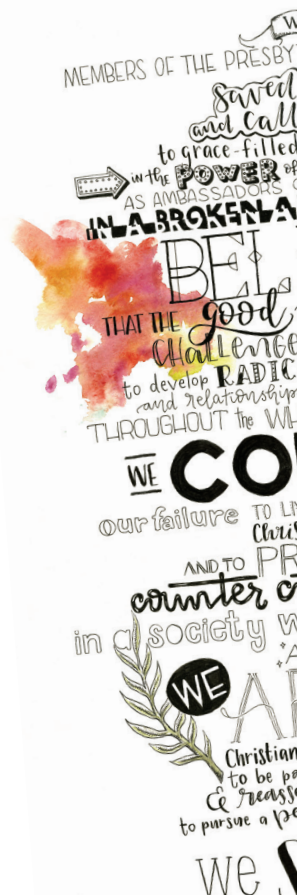 W
MEMBERS OF THE PRESBY
Saved
and Call
to grace-filled
in the POWER of
AS AMBASSADORS
IN A BROKEN A
BEL
THAT THE good
CHALLENGE
to develop RADIC
and relationship
THROUGHOUT the WH
WE CO
our failure TO LI
Chris
AND TO PR
counter c
in a society w
A
WE AF
Christian
to be pa
& reasse
to pursue a pe
we